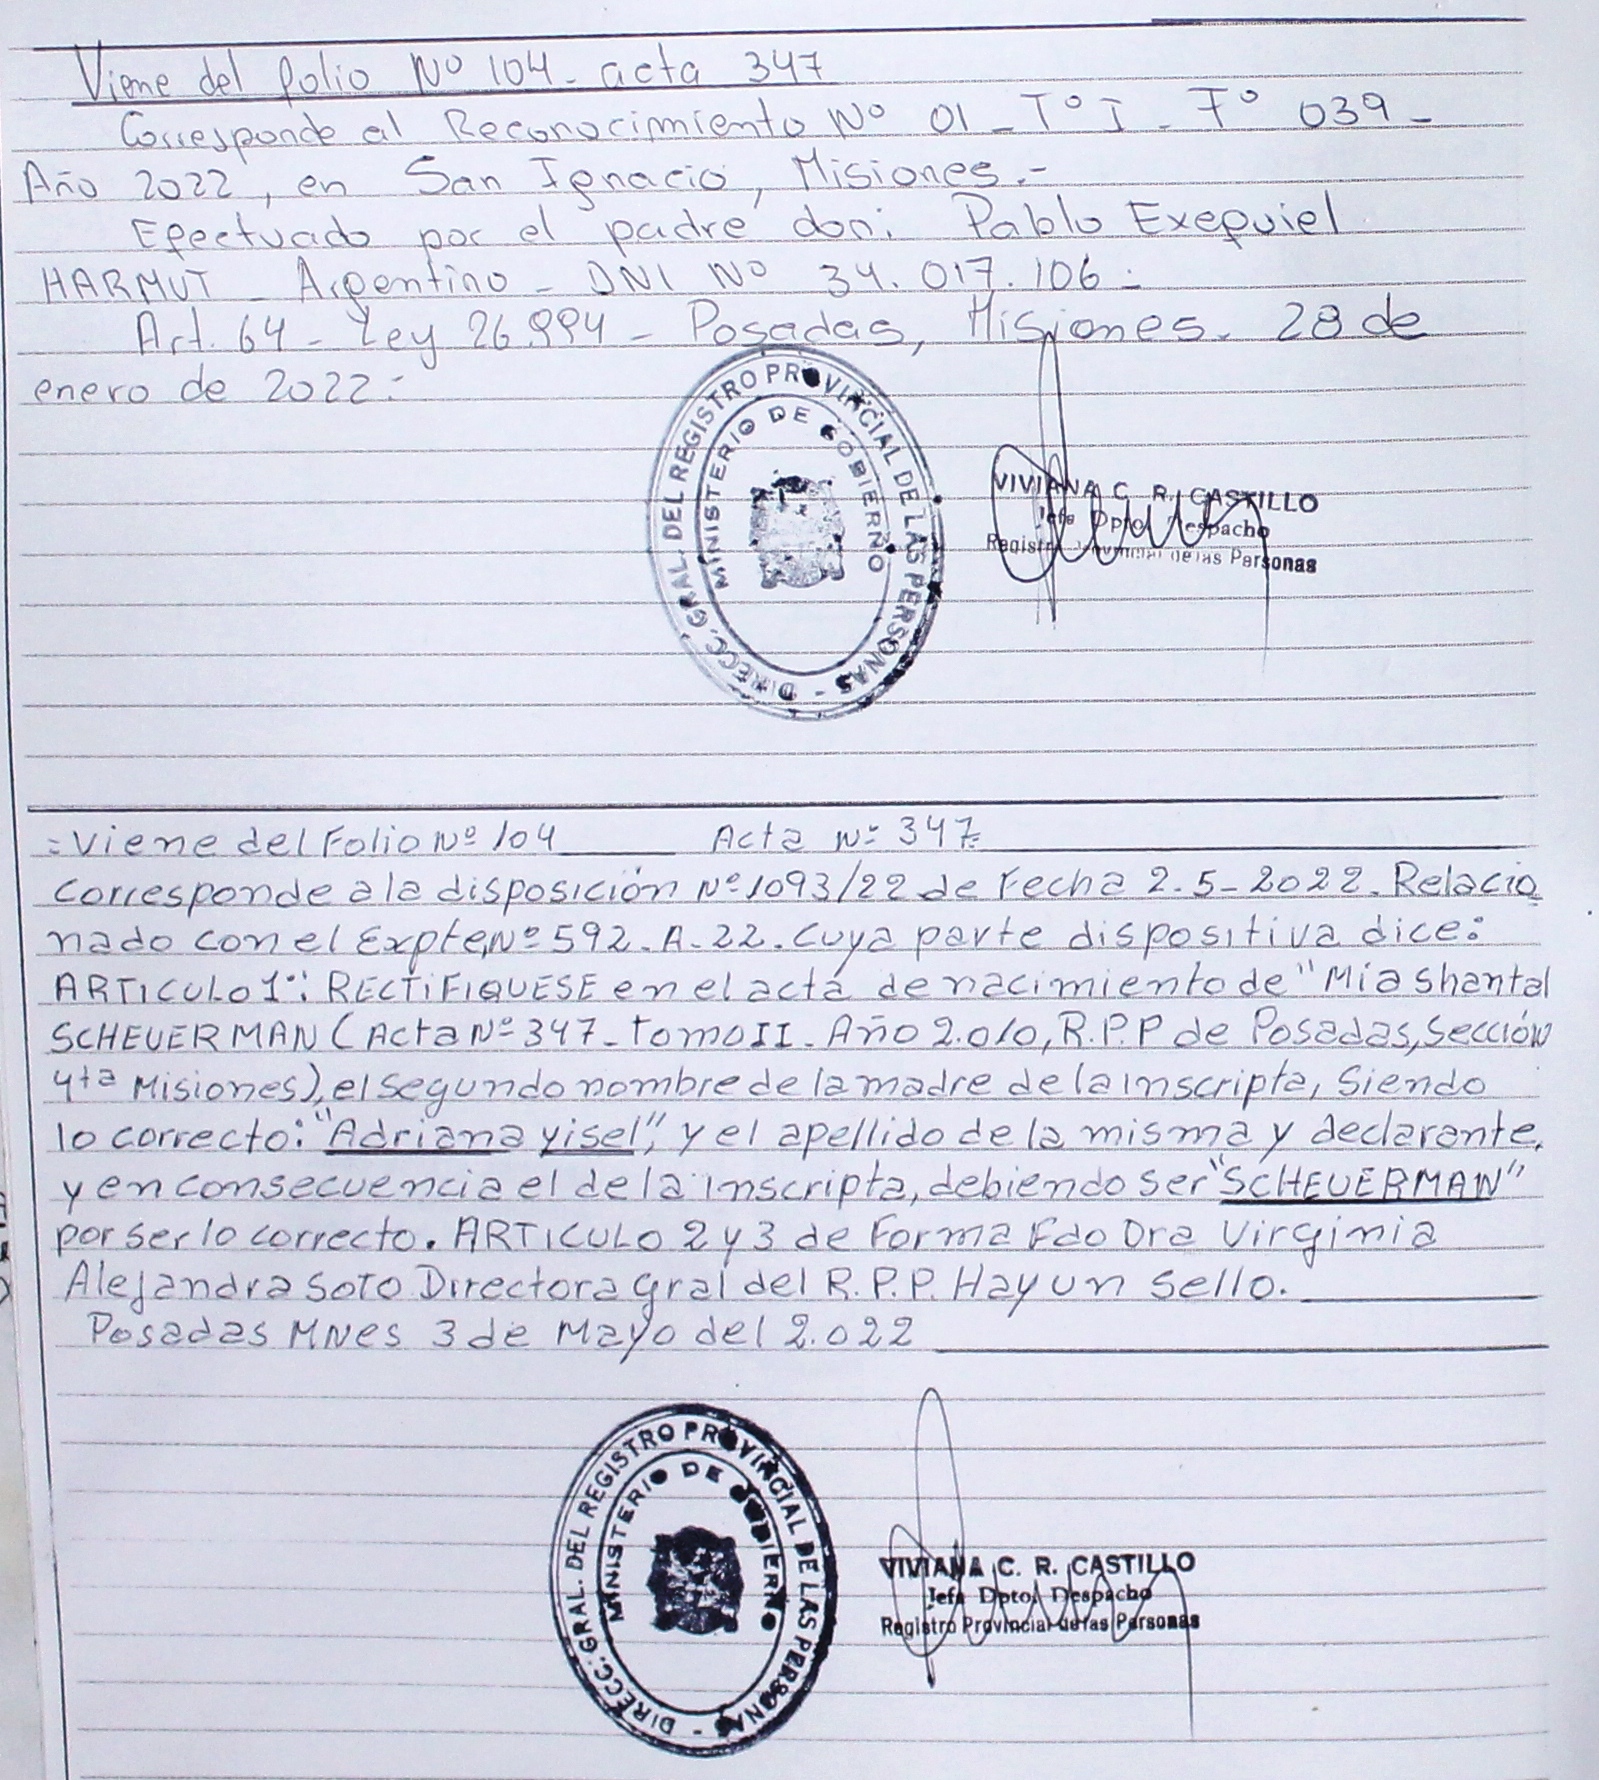 Viene del folio Nº 104- acta 347
Corresponde al Reconocimiento Nº 01 - Tº I - Fº 039 -
Año 2022, en San Ignacio, Misiones.-
Efectuado por el padre don: Pablo Exequiel
HARMUT - Argentino - DNI Nº 34.017.106.-
Art. 64 - Ley 26.994 - Posadas, Misiones. 28 de
enero de 2022.-
DIRECC. GRAL. DEL REGISTRO PROVINCIAL DE LAS PERSONAS -
MINISTERIO DE GOBIERNO
VIVIANA C. R. CASTILLO
Jefa Dpto. Despacho
Registro Provincial de las Personas
=Viene del Folio Nº 104 Acta Nº 347=
Corresponde a la disposición Nº 1093/22 de Fecha 2-5-2022. Relacio
nado con el Expte, Nº 592-A-22. Cuya parte dispositiva dice:
ARTICULO 1º: RECTIFIQUESE en el acta de nacimiento de "Mia Shantal
SCHEUERMAN (Acta Nº 347 - Tomo II - Año 2.010, R.P.P de Posadas, Sección
4ta Misiones), el segundo nombre de la madre de la inscripta, Siendo
lo correcto: "Adriana yisel", y el apellido de la misma y declarante,
y en consecuencia el de la inscripta, debiendo ser "SCHEUERMAN"
por ser lo correcto. ARTICULO 2 y 3 de Forma Fdo Dra Virginia
Alejandra Soto Directora Gral del R.P.P. Hay un Sello.
Posadas MNes 3 de Mayo del 2.022
DIRECC. GRAL. DEL REGISTRO PROVINCIAL DE LAS PERSONAS -
MINISTERIO DE GOBIERNO
VIVIANA C. R. CASTILLO
Jefa Dpto. Despacho
Registro Provincial de las Personas